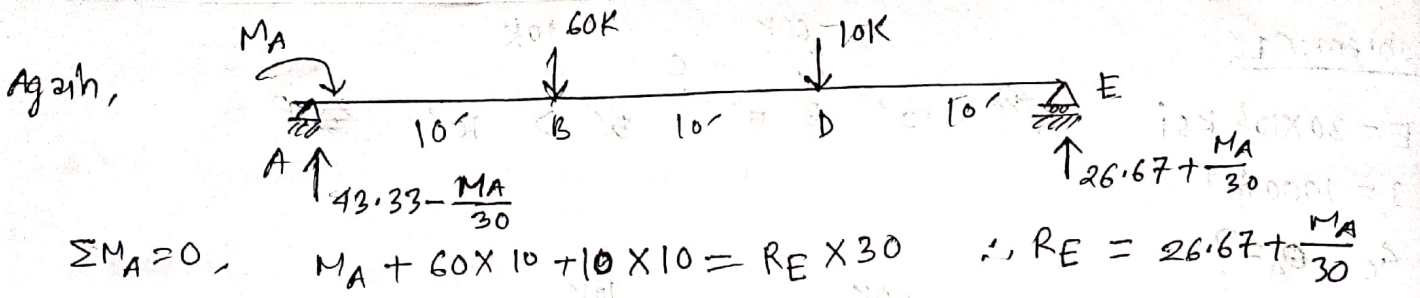 M_A 60K 10K
Again,
10' B 10' D 10' E
A 43.33 - M_A/30 26.67 + M_A/30
ΣM_A = 0, M_A + 60 X 10 + 10 X 10 = R_E X 30 ∴, R_E = 26.67 + M_A/30